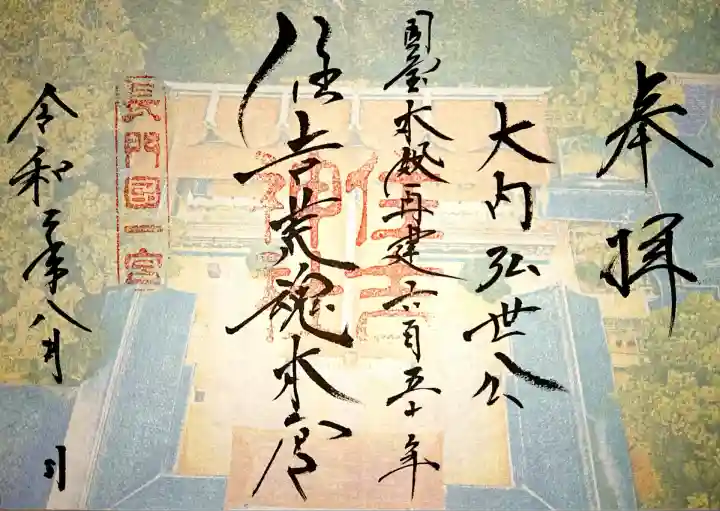 奉拝
大内弘世公
国宝本殿再建六百五十年
住吉荒魂本宮
住吉神社
長門国一宮
令和二年八月 日